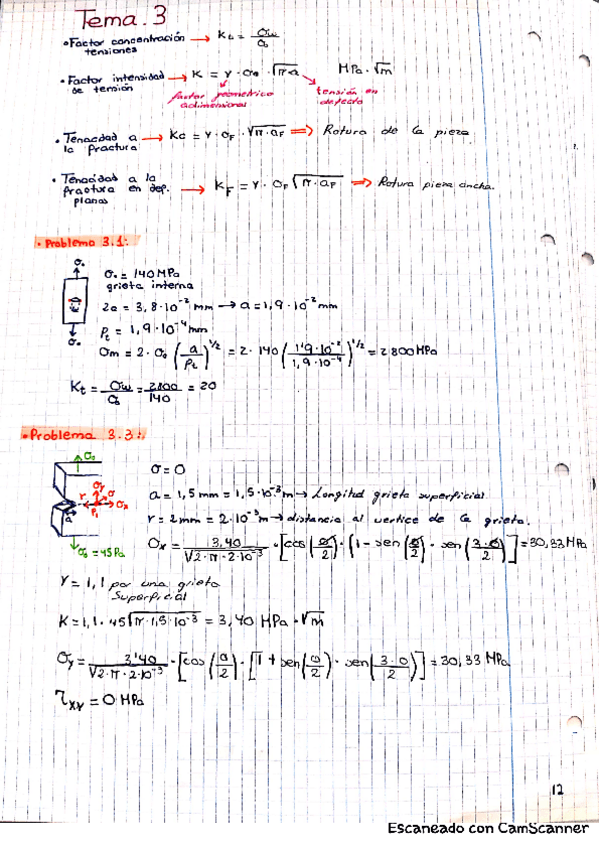 Tema. 3
• Factor concentración tensiones → Kt = σm/σo
• Factor intensidad de tensión → K = Y · σo · √π a MPa · √m
factor geometrico adimensional
tensión en defecto
• Tenacidad a la fractura → Kc = Y · σF · √π · aF ⇒ Rotura de la pieza
• Tenacidad a la fractura en def. planas → KF = Y · σF √π · aF ⇒ Rotura pieza ancha.
• Problema 3.1:
σo
σo = 140 MPa
grieta interna
2a = 3,8·10⁻² mm → a = 1,9·10⁻² mm
ρt = 1,9·10⁻⁴ mm
σo
σm = 2 · σo (a/ρt)^1/2 = 2 · 140 (1'9·10⁻²/1,9·10⁻⁴)^1/2 = 2800 MPa
Kt = σm/σo = 2800/140 = 20
• Problema 3.3:
σo
θ = 0
a = 1,5 mm = 1,5·10⁻³ m → Longitud grieta superficial
σy
σ
r
σx
a
r = 2 mm = 2·10⁻³ m → distancia al vertice de la grieta.
σo = 45 Pa
σx = 3,40/√2·π·2·10⁻³ · [cos (0/2) · (1 - sen (0/2) · sen (3·0/2)] = 30,33 MPa
Y = 1,1 por una grieta
Superficial
K = 1,1 · 45 √π·1,5·10⁻³ = 3,40 MPa · √m
σy = 3'40/√2·π·2·10⁻³ · [cos (0/2) · [1 + sen (0/2) · sen (3·0/2)] = 30,33 MPa
τxy = 0 MPa
12
Escaneado con CamScanner